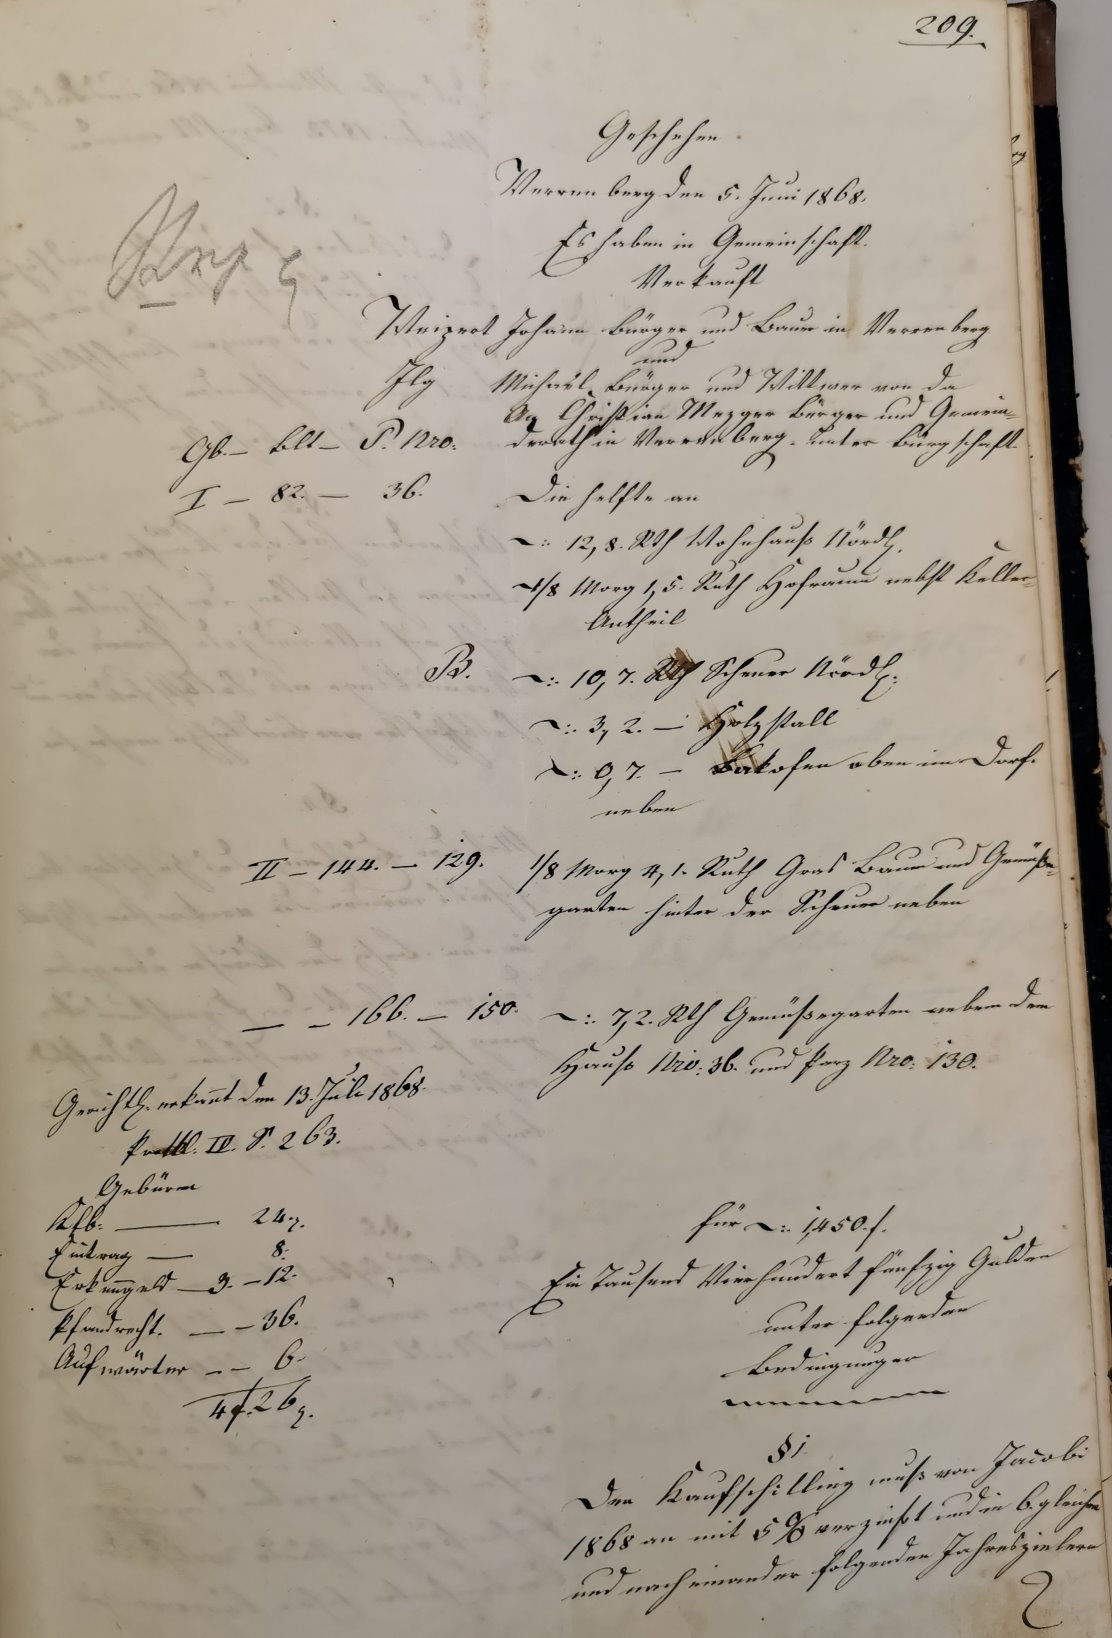 209.
Geschehen
Verrenberg den 5. Juni 1868.
Es haben in Gemeinschaft
Verkauft
Weizert Johann Bürger und Bauer in Verrenberg
und
Ilg Michael Bürger und Wittwer von da
An Christian Mezger Bürger und Gemein-
derath in Verrenberg unter Burgschaft
Gb. – Blt – P. Nro:
I – 82. – 36.
Die helfte an
–: 12,8. Rth Wohnhauß Nördl.
1/8 Morg 1,5. Ruth Hofraum nebst Keller-
Antheil
B. –: 10,7. Rth Scheuer Nördl:
–: 3,2. – Holzstall
–: 0,7. – Bakofen oben im Dorf.
neben
II – 144. – 129. 1/8 Morg 4,1. Ruth Gras Baum und Gemüße-
garten hinter der Scheuer neben
– – 166. – 150. –: 7,2. Rth Gemüßegarten neben dem
Hauß Nro: 36. und Parz Nro: 130.
Gerichtl. erkannt den 13. Juli 1868.
Prottkl. IV. S. 263.
Gebüren
Kfb. — 24
Eintrag — 8.
Erkenngeld – 3. – 12.
Pfandrecht. – – 36.
Aufwärter – – 6.
4 f. 26
für –: 1,450. f.
Ein Tausend Vierhundert fünfzig Gulden
unter folgenden
Bedingungen
§ 1.
Der Kaufschilling muß von Jacobi
1868 an mit 5 % verzinßt und in 6. gleichen
und nach einander folgenden Jahreszielern